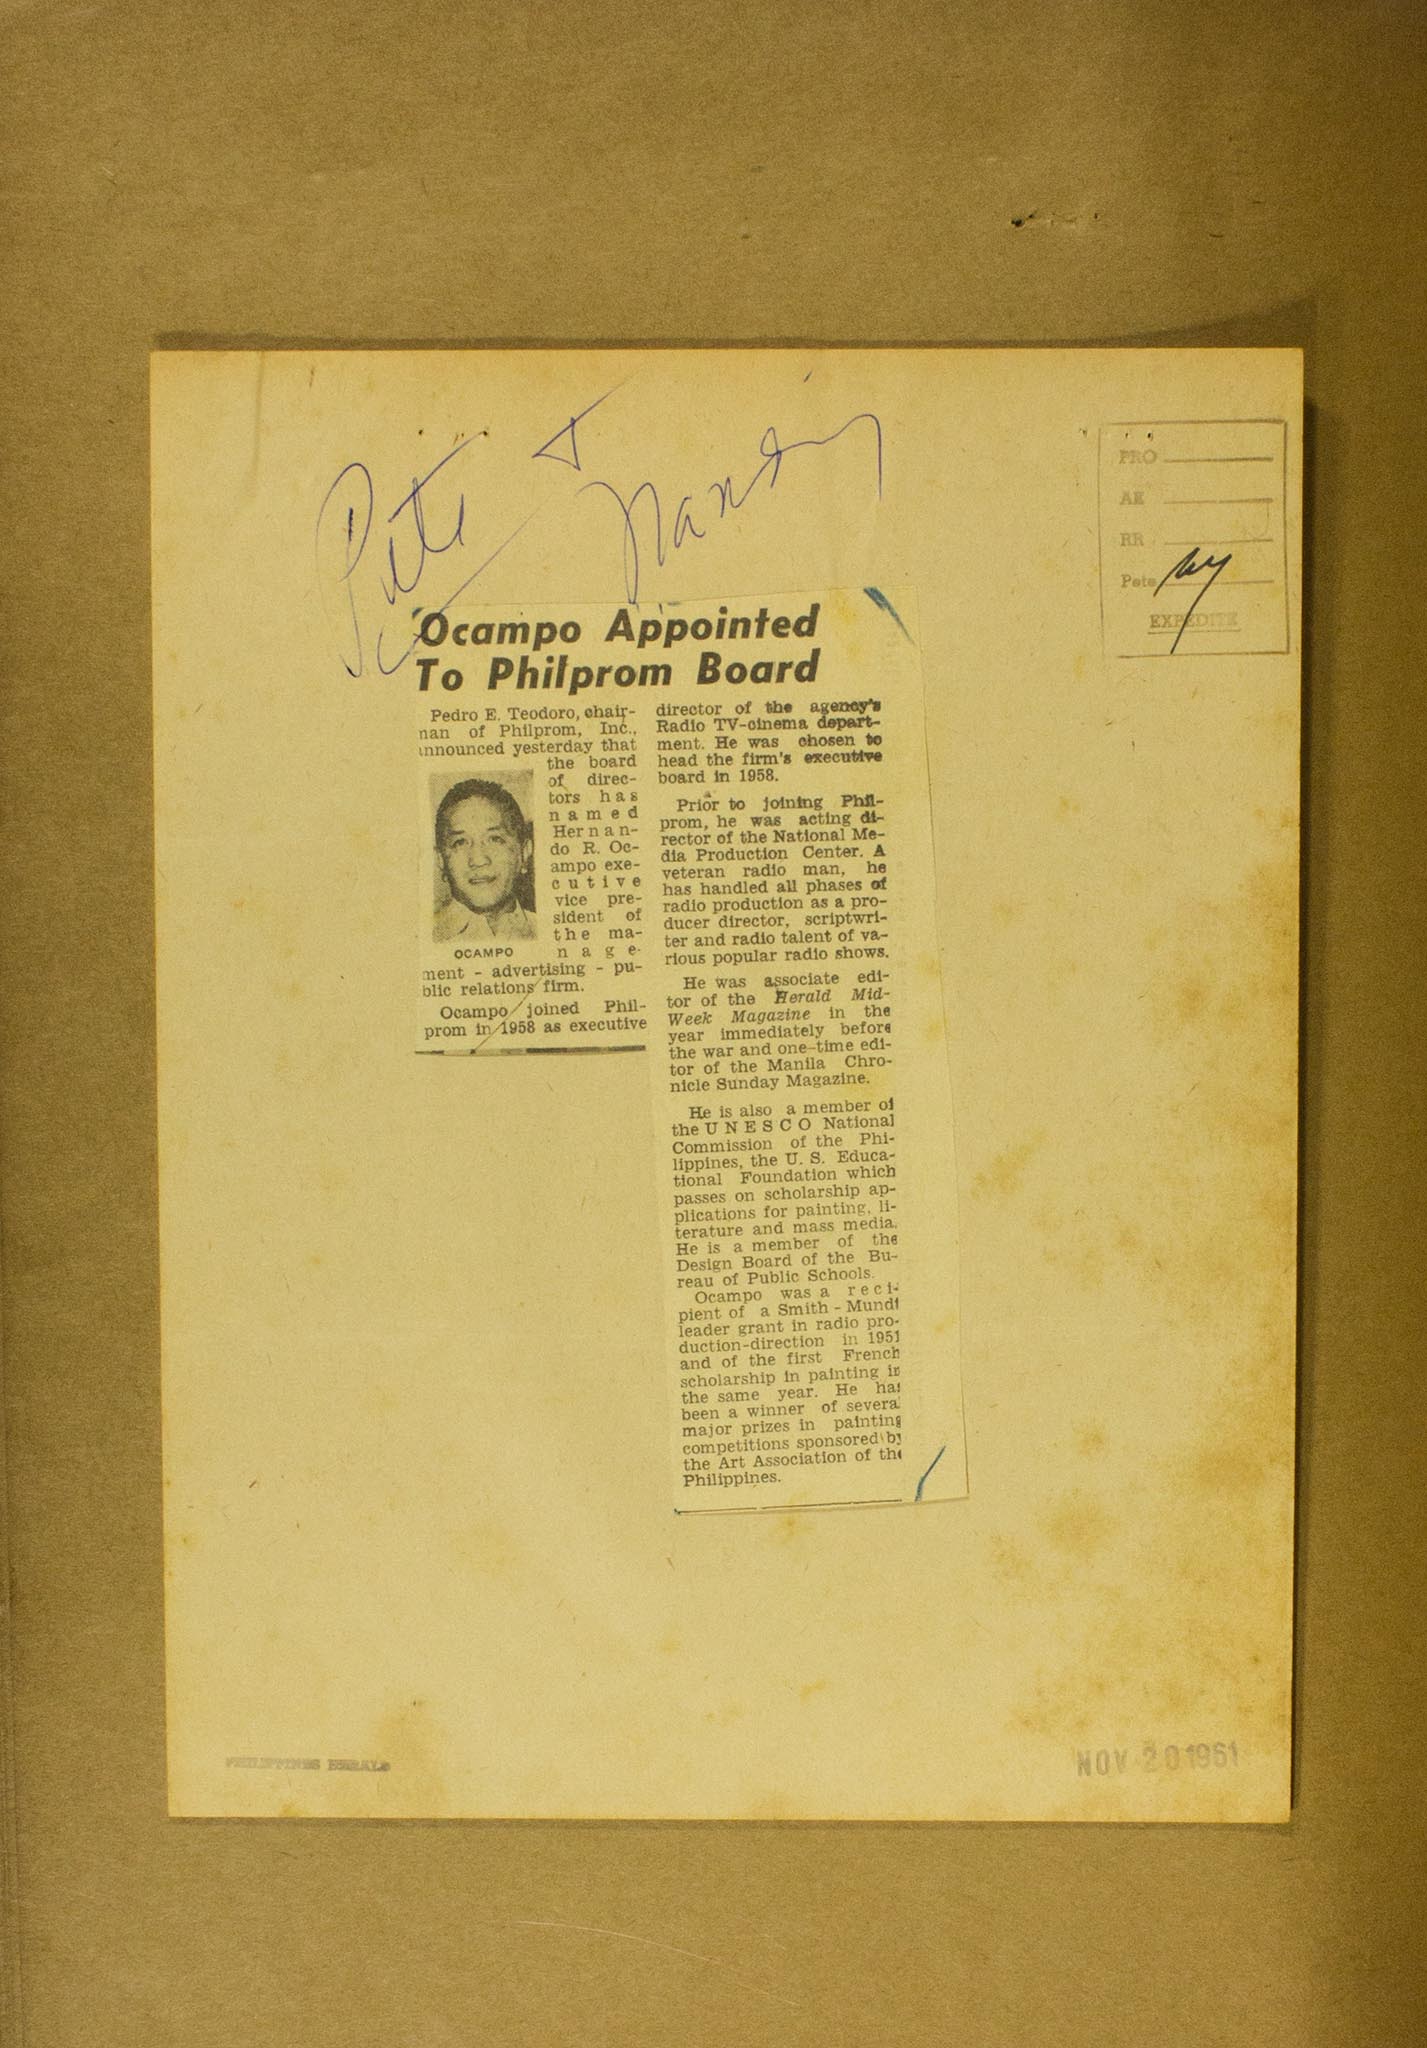 Pete &
Nanding
PRO
AE
RR
Pete
EXPEDITE
Ocampo Appointed
To Philprom Board
Pedro E. Teodoro, chair-
man of Philprom, Inc.,
announced yesterday that
the board
of direc-
tors has
named
Hernan-
do R. Oc-
ampo exe-
cutive
vice pre-
sident of
the ma-
nage-
OCAMPO
ment - advertising - pu-
blic relations firm.
Ocampo joined Phil-
prom in 1958 as executive
director of the agency's
Radio TV-cinema depart-
ment. He was chosen to
head the firm's executive
board in 1958.
Prior to joining Phil-
prom, he was acting di-
rector of the National Me-
dia Production Center. A
veteran radio man, he
has handled all phases of
radio production as a pro-
ducer director, scriptwri-
ter and radio talent of va-
rious popular radio shows.
He was associate edi-
tor of the Herald Mid-
Week Magazine in the
year immediately before
the war and one-time edi-
tor of the Manila Chro-
nicle Sunday Magazine.
He is also a member of
the UNESCO National
Commission of the Phi-
lippines, the U. S. Educa-
tional Foundation which
passes on scholarship ap-
plications for painting, li-
terature and mass media.
He is a member of the
Design Board of the Bu-
reau of Public Schools.
Ocampo was a reci-
pient of a Smith - Mundt
leader grant in radio pro-
duction-direction in 1951
and of the first French
scholarship in painting in
the same year. He has
been a winner of several
major prizes in painting
competitions sponsored by
the Art Association of the
Philippines.
PHILIPPINES HERALD
NOV 20 1961